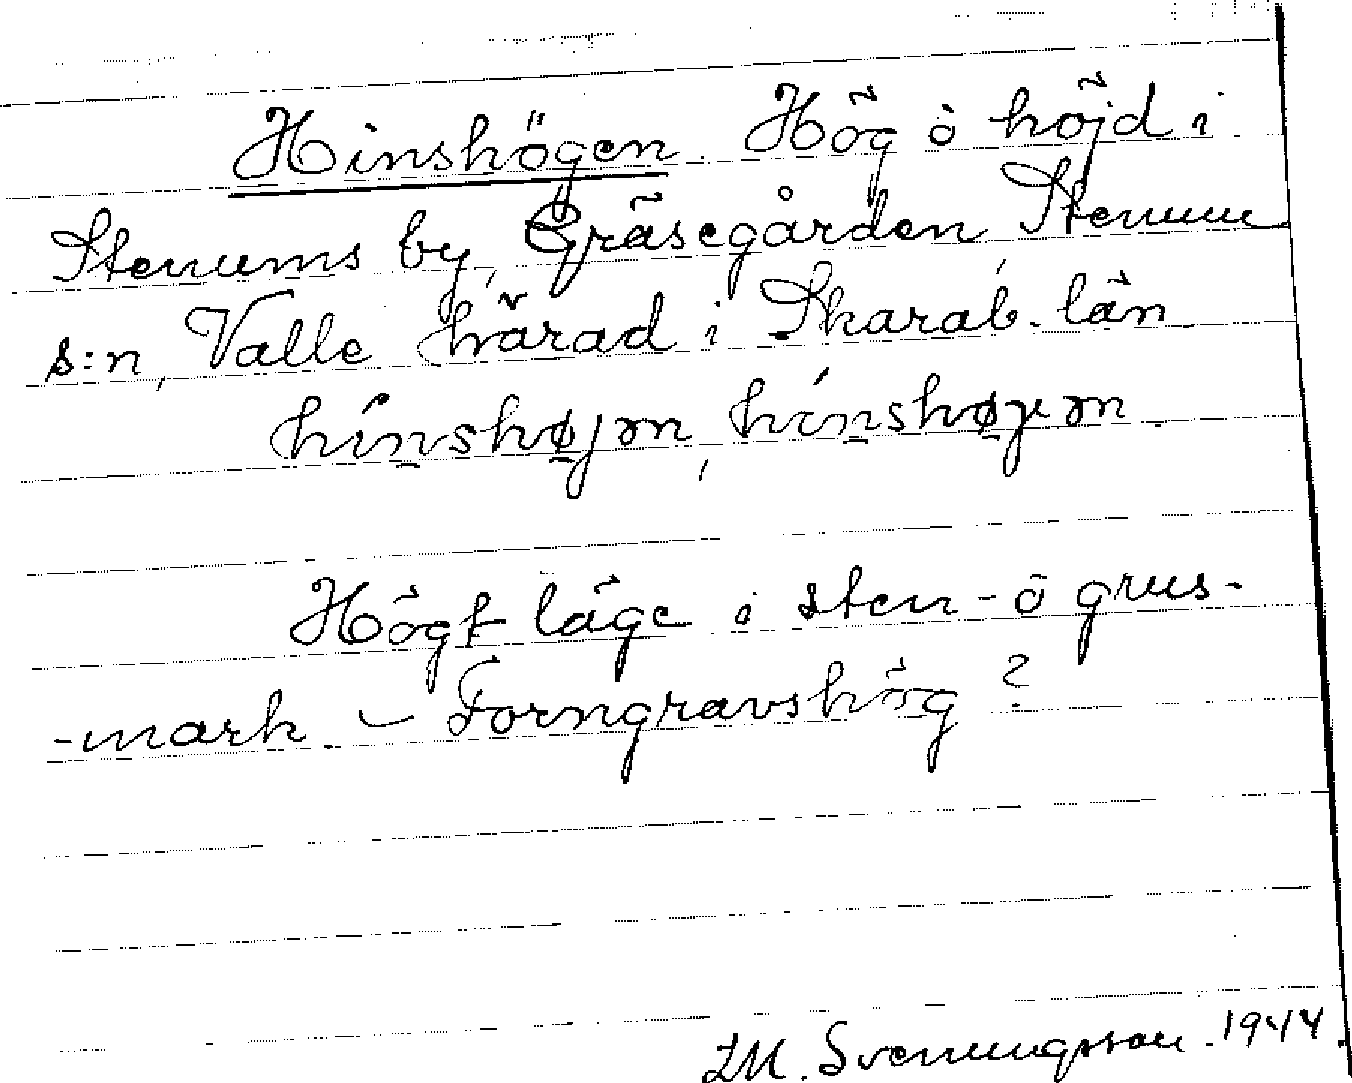 Hinshögen. Hög o höjd i
Stenums by, Gräsegården Stenum
s:n, Valle härad i Skarab. län
Högt läge i sten- o grus-
-mark – Forngravshög?
Svenungsson. 1944.